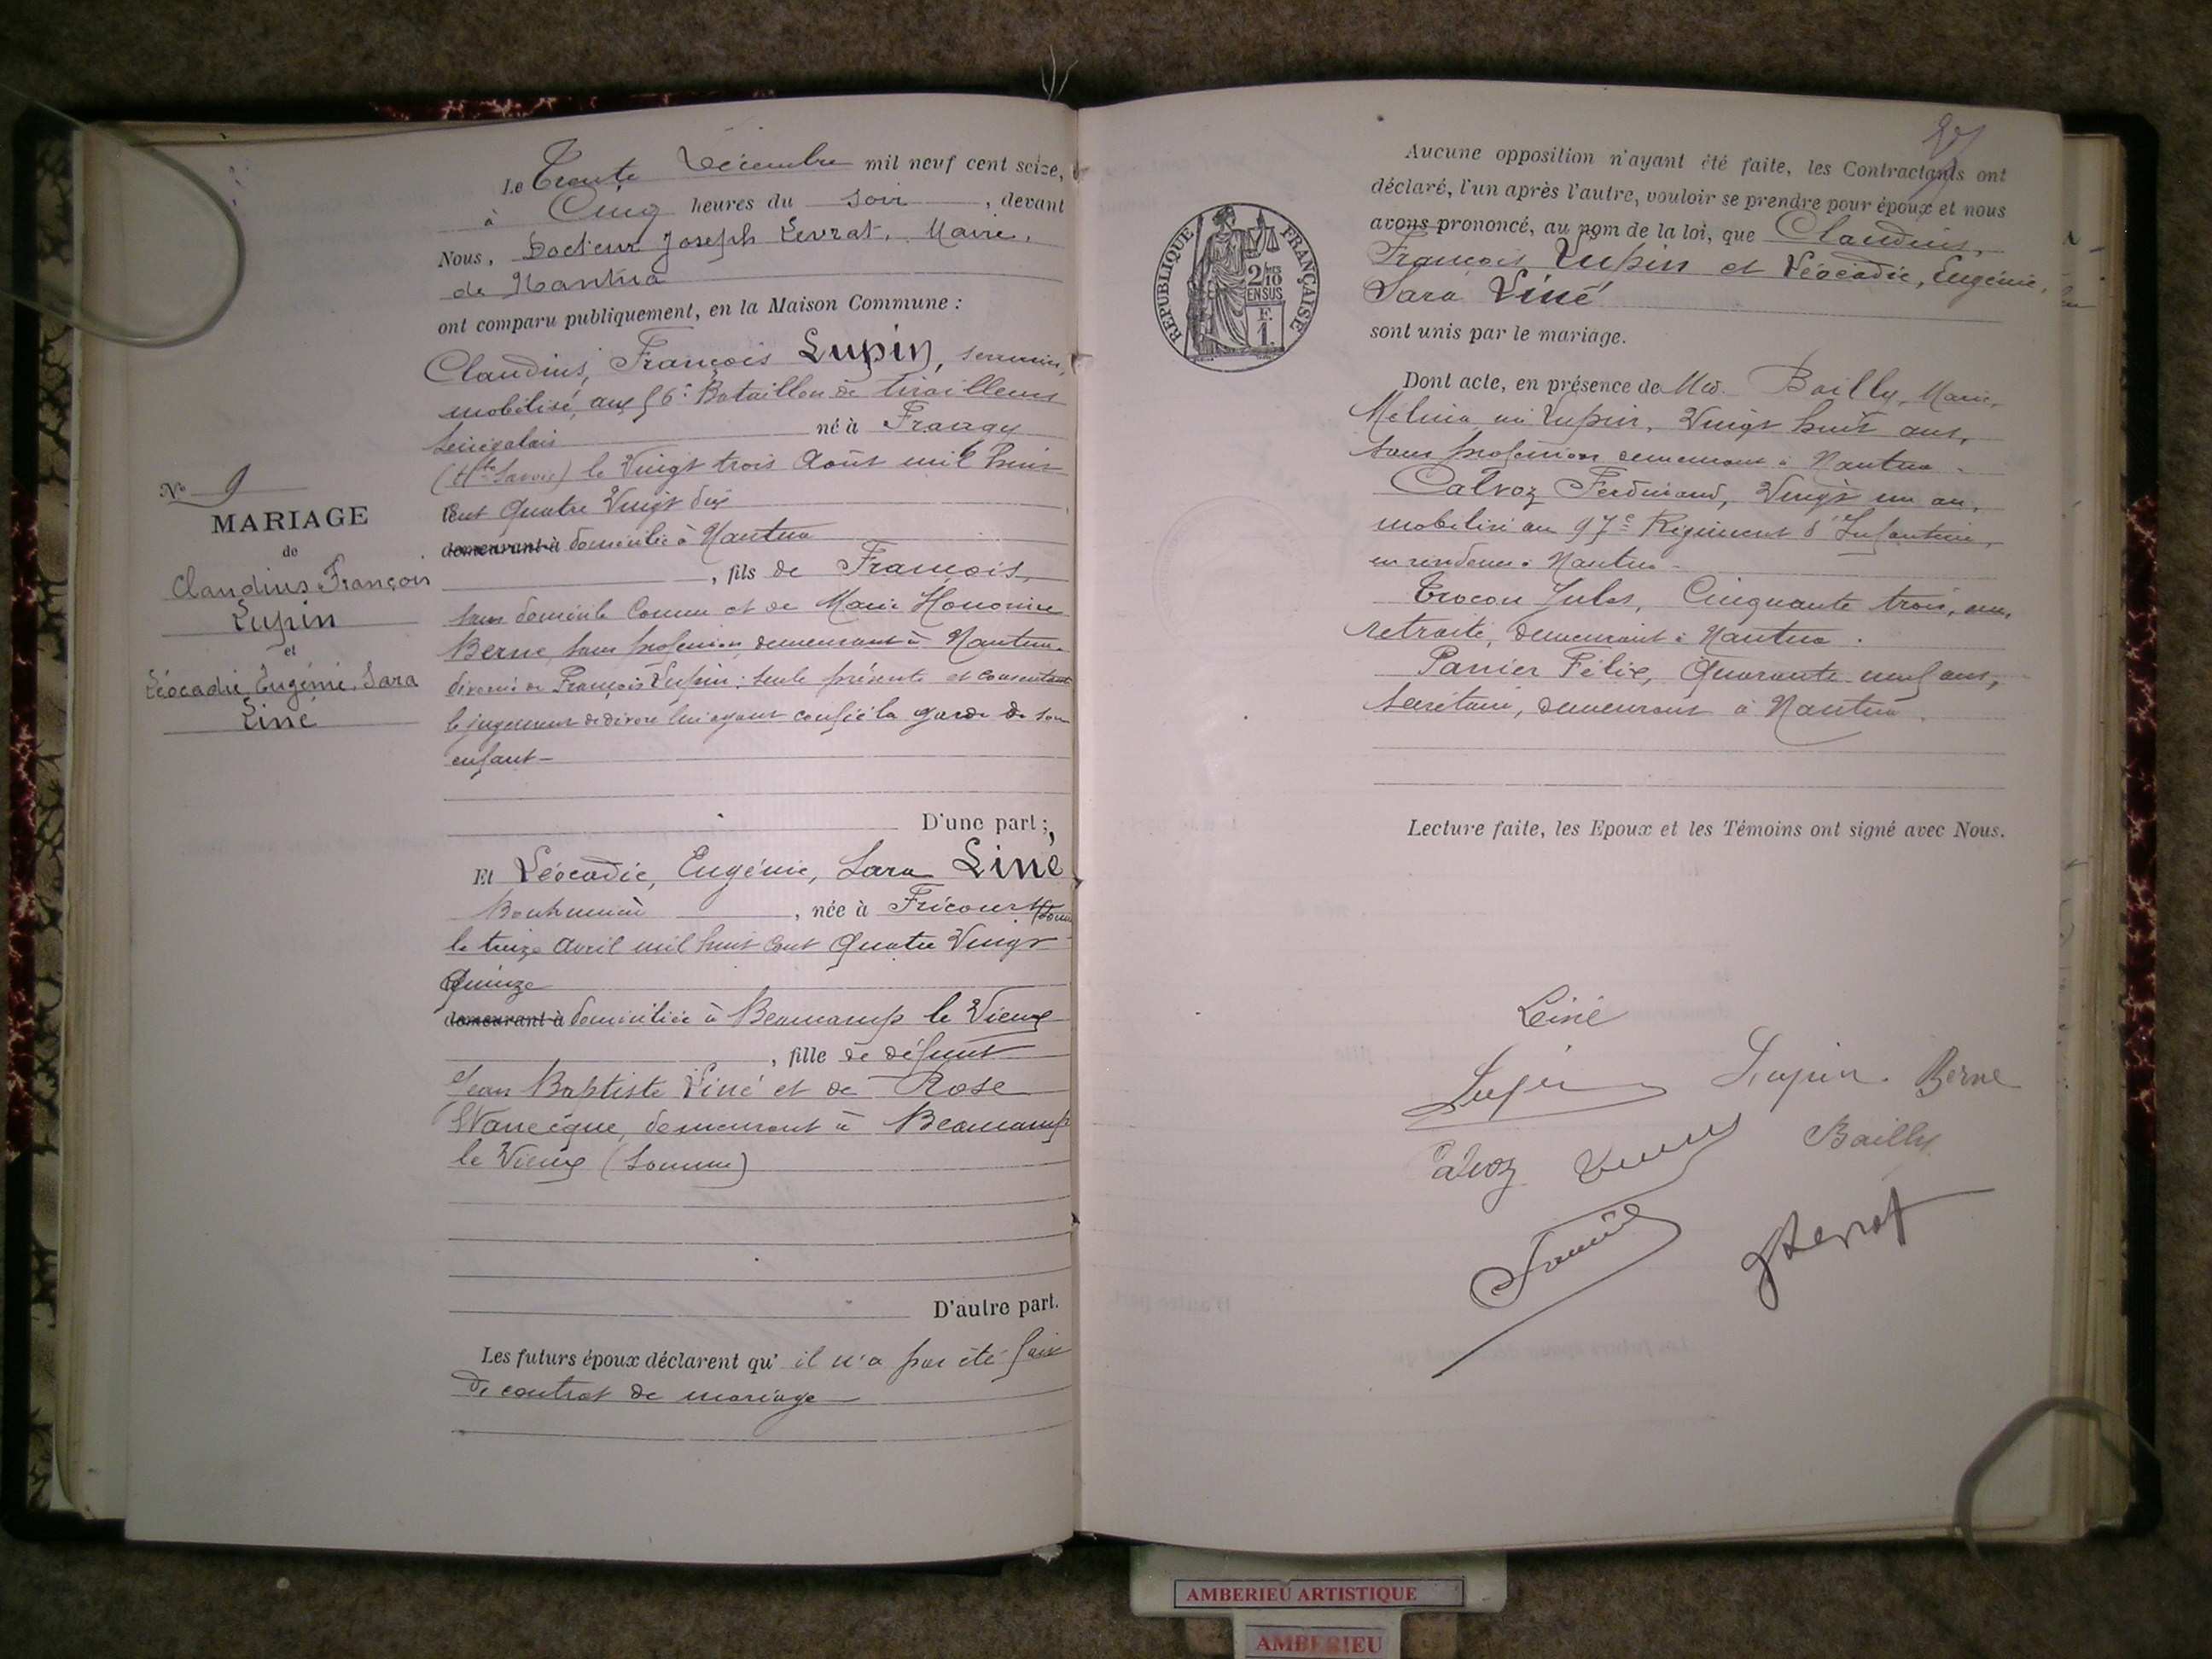 Nº 9
MARIAGE
de
Claudius François
Lupin
et
Léocadie, Eugénie, Sara
Liné
Le Trente Décembre mil neuf cent seize,
à Cinq heures du soir, devant
Nous, Docteur Joseph Levrat, Maire,
de Nantua
ont comparu publiquement, en la Maison Commune :
Claudius, François Lupin, serrurier,
mobilisé, aux 56e Bataillon de tirailleurs
Sénégalais né à Frangy
(Hte Savoie) le Vingt trois Août mil huit
cent Quatre Vingt dix
demeurant à domicilié à Nantua
, fils de François,
sans domicile connu et de Marie Honorine
Berne, sans profession, demeurant à Nantua
divorcée de François Lupin ; seule présente et consentante
le jugement de divorce lui ayant confié la garde de son
enfant -
D'une part ;
Et Léocadie, Eugénie, Sara Liné
, née à Fricourt (Somme
le treize avril mil huit cent Quatre Vingt
Quinze
demeurant à domiciliée à Beaucamp le Vieux
, fille de défunt
Jean Baptiste Liné et de Rose
Wanecque, demeurant à Beaucamp
le Vieux (Somme)
D'autre part.
Les futurs époux déclarent qu' il n'a pas été fait
de contrat de mariage
REPUBLIQUE FRANÇAISE
2/10
EN SUS
F.
1.
Aucune opposition n'ayant été faite, les Contractants ont
déclaré, l'un après l'autre, vouloir se prendre pour époux et nous
avons prononcé, au nom de la loi, que Claudius,
François Lupin et Léocadie, Eugénie,
Sara Liné
sont unis par le mariage.
Dont acte, en présence de Bailly, Marie,
Mélina née Lupin, Vingt huit ans,
sans profession demeurant à Nantua -
Catroz Ferdinand, Vingt un an,
mobilisé au 97e Régiment d'Infanterie,
en résidence à Nantua -
Crocon Jules, Cinquante trois, ans,
retraité, demeurant à Nantua.
Panier Félix, Quarante neuf ans,
secrétaire, demeurant à Nantua.
Lecture faite, les Epoux et les Témoins ont signé avec Nous.
Liné
Lupin Lupin. Berne
Catroz Bailly
JLevrat
AMBERIEU ARTISTIQUE
AMBERIEU